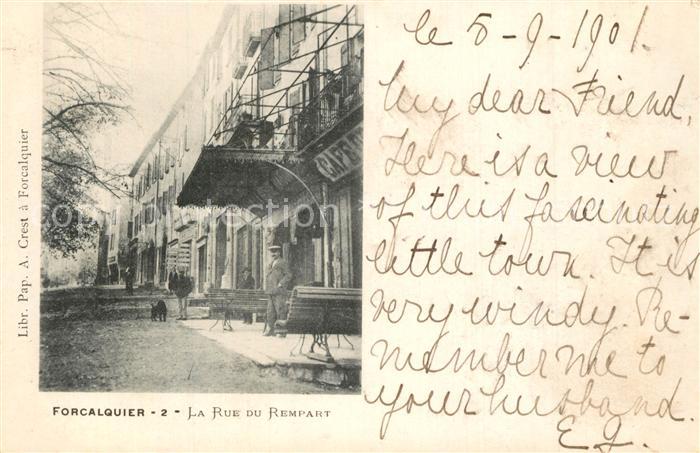 le 5-9-1901.
My dear Friend,
Here is a view
of this fascinating
little town. It is
very windy. Re-
member me to
your husband.
E.J.
CAFÉ
Libr. Pap. A. Crest à Forcalquier
FORCALQUIER - 2 - LA RUE DU REMPART